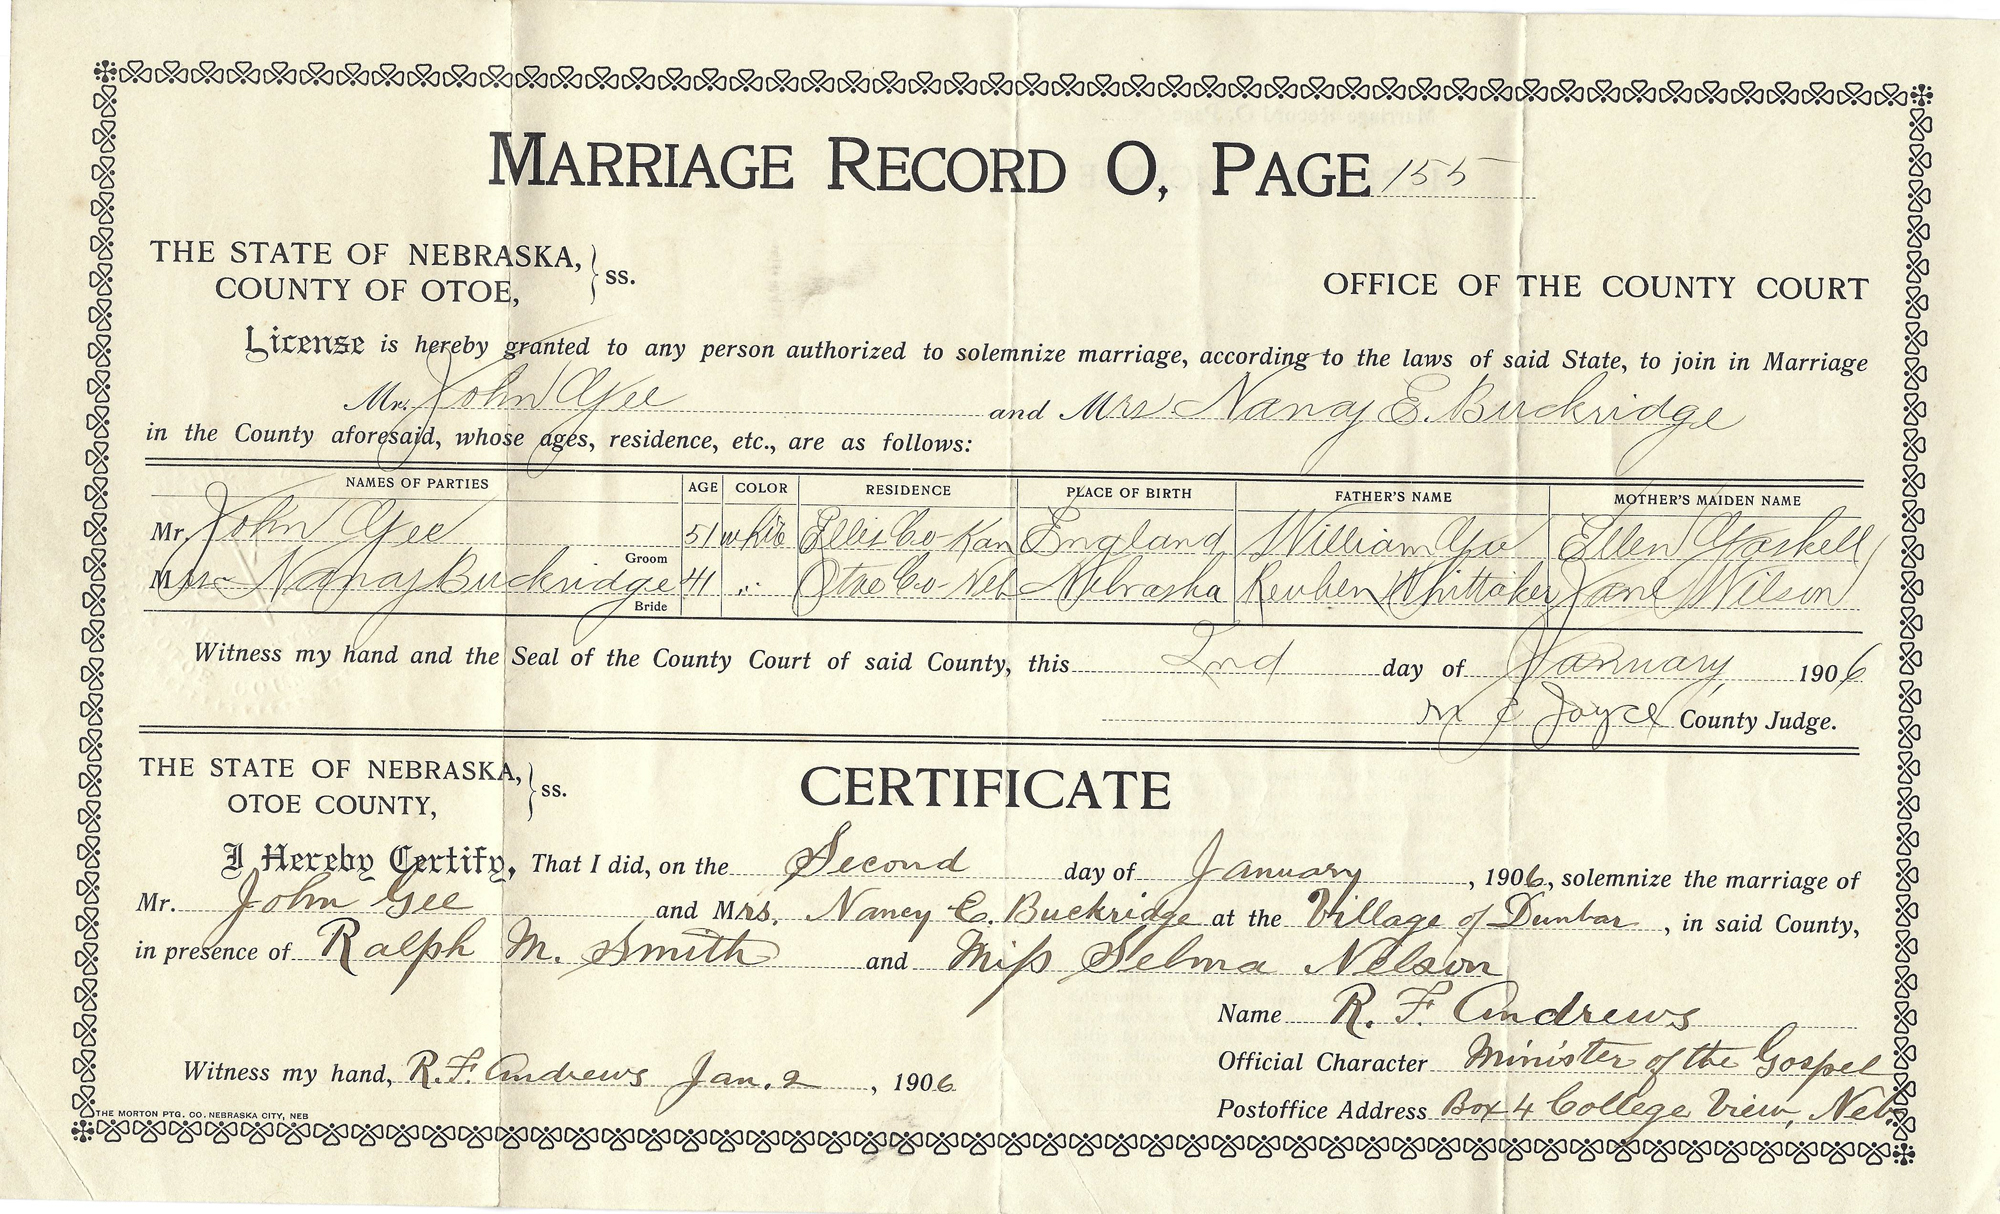 MARRIAGE RECORD O, PAGE 155
THE STATE OF NEBRASKA, } ss.
COUNTY OF OTOE,
OFFICE OF THE COUNTY COURT
License is hereby granted to any person authorized to solemnize marriage, according to the laws of said State, to join in Marriage
Mr. John Gee and Mrs Nancy E. Buckridge
in the County aforesaid, whose ages, residence, etc., are as follows:
NAMES OF PARTIES AGE COLOR RESIDENCE PLACE OF BIRTH FATHER'S NAME MOTHER'S MAIDEN NAME
Mr. John Gee Groom 51 white Ellis Co-Kan England William Gee Ellen Gaskell
Mrs Nancy Buckridge Bride 41 " Otoe Co-Neb Nebraska Reuben Whittaker Jane Wilson
Witness my hand and the Seal of the County Court of said County, this 2nd day of January 1906
M C Joyce County Judge.
THE STATE OF NEBRASKA, } ss.
OTOE COUNTY,
CERTIFICATE
I Hereby Certify, That I did, on the Second day of January, 1906, solemnize the marriage of
Mr. John Gee and Mrs. Nancy E. Buckridge at the Village of Dunbar, in said County,
in presence of Ralph M. Smith and Miss Selma Nelson
Name R. F. Andrews
Official Character Minister of the Gospel
Witness my hand, R. F. Andrews Jan. 2, 1906
Postoffice Address Box 4 College View, Neb.
THE MORTON PTG. CO. NEBRASKA CITY, NEB